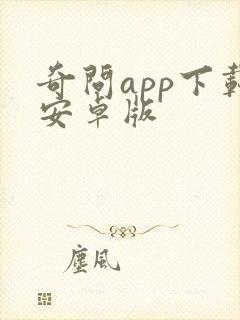 奇問app下載
安卓版
塵風